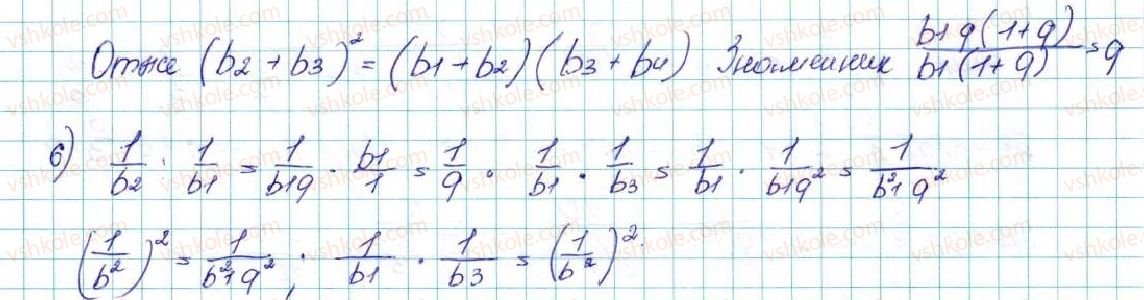 Отже (b₂ + b₃)² = (b₁ + b₂)(b₃ + b₄) Знаменник b₁q(1+q)/b₁(1+q) = q
б) 1/b₂ : 1/b₁ = 1/b₁q · b₁/1 = 1/q. 1/b₁ · 1/b₃ = 1/b₁ · 1/b₁q² = 1/b₁²q²
(1/b²)² = 1/b₁²q² ; 1/b₁ · 1/b₃ = (1/b²)².